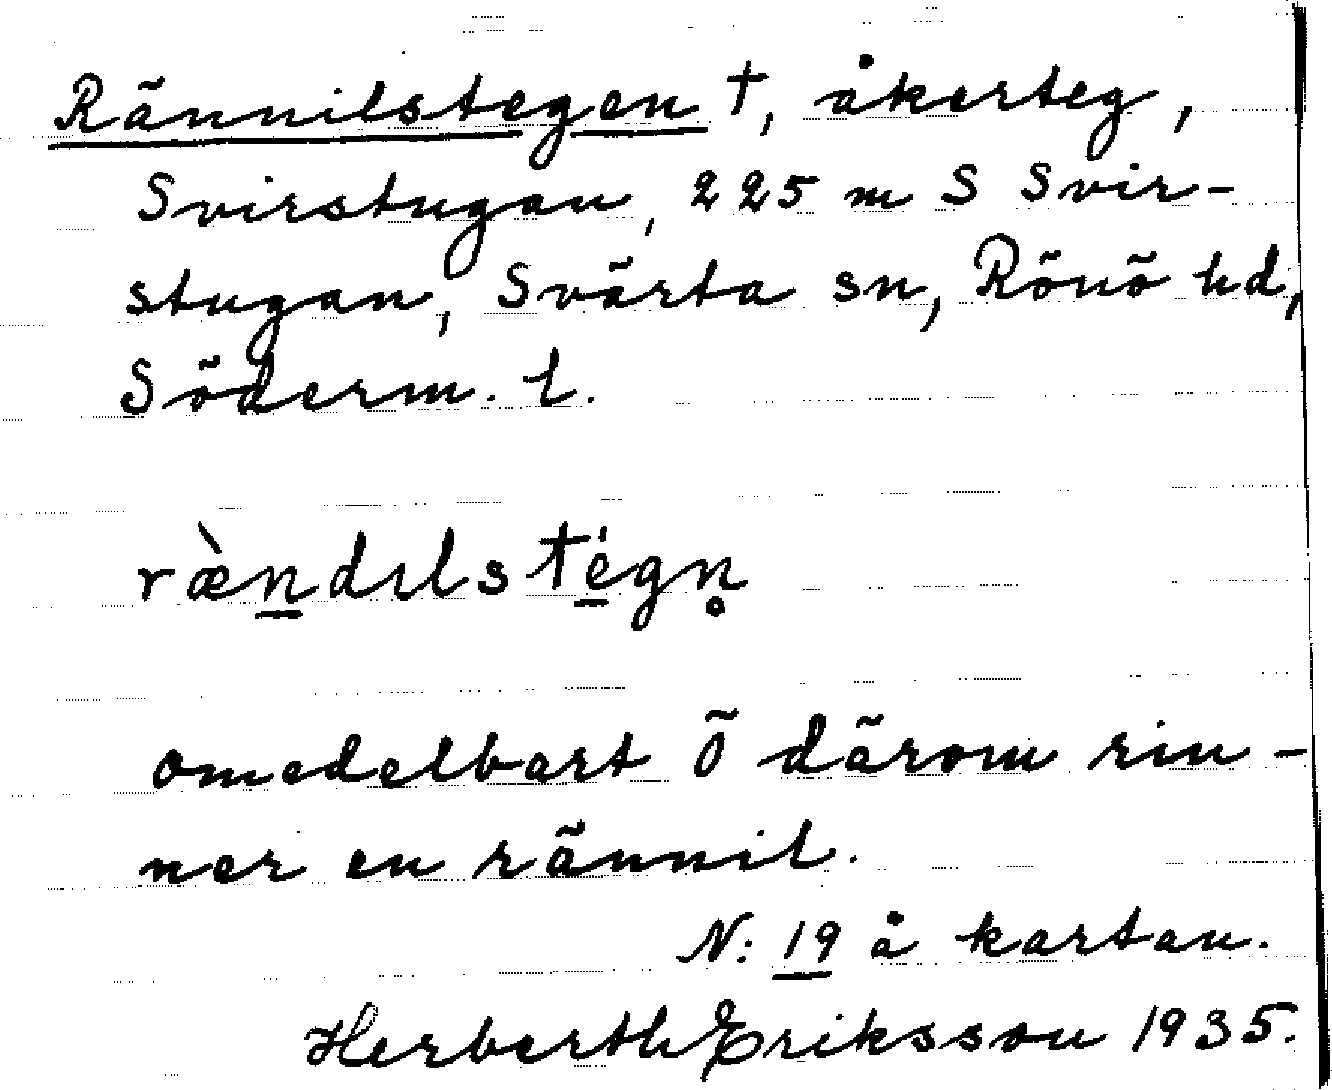 Rännilstegen †, åkerteg,
Svirstugan, 225 m S Svir-
stugan, Svärta sn, Rönö hd,
Söderm. l.
ræ̀n̲dɩls te̲̍gn̥
omedelbart Ö därom rin-
ner en rännil.
N: 19 å kartan.
Herberth Eriksson 1935.